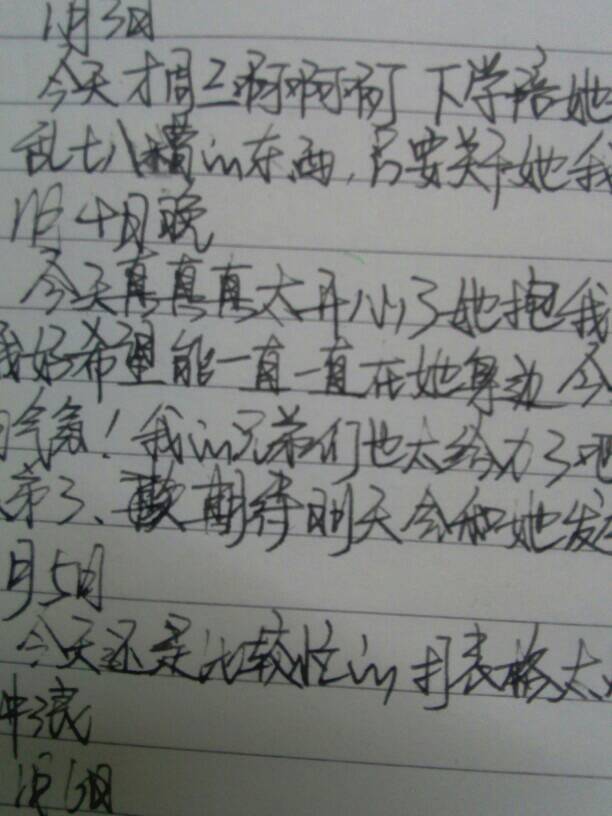 1月3日
今天才周三啊啊啊啊 下学陪她
乱七八糟的东西,只要关于她我
1月4日晚
今天真真真太开心了她抱我
我好希望能一直一直在她身边 今
的气氛!我的兄弟们也太给力了吧
弟了、期待明天会和她发
月5日
今天还是比较忙的 打表格太
冲浪
1月6日